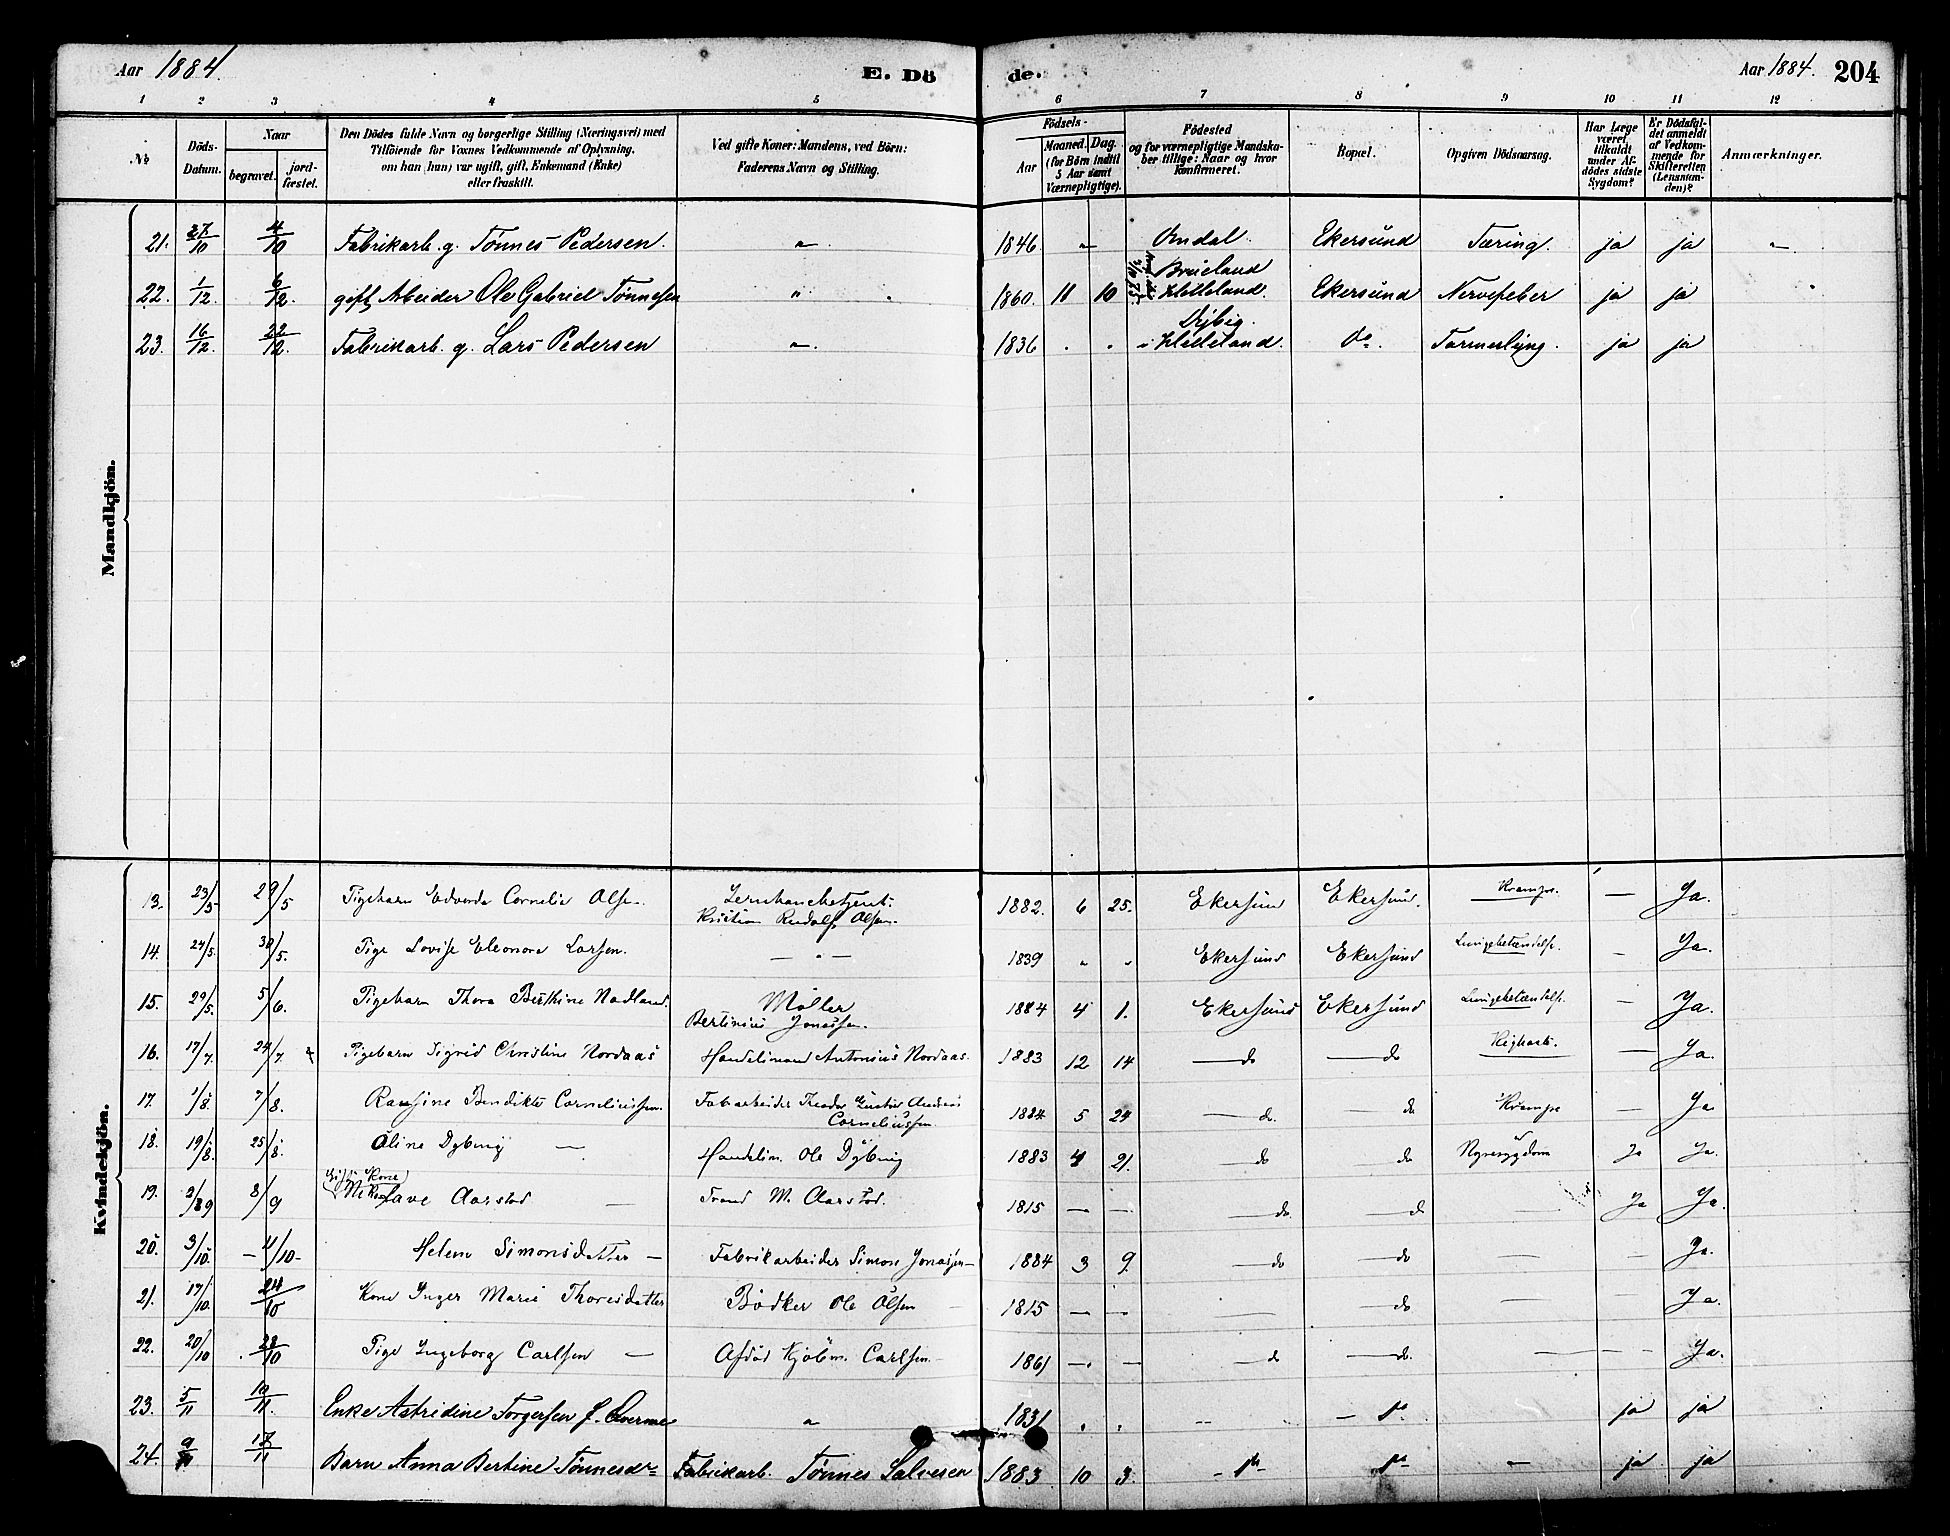 Aar 1884. E. Dö
de. Aar 1884. 204
1 2 3 4 5 6 7 8 9 10 11 12
No
Döds-Datum.
Naar
begravet. jordfæstet.
Den Dödes fulde Navn og borgerlige Stilling (Næringsvei) med
Tilföiende for Voxnes Vedkommende af Oplysning,
om han (hun) var ugift, gift, Enkemand (Enke)
eller fraskilt.
Ved gifte Koner: Mandens, ved Börn:
Faderens Navn og Stilling.
Födsels-
Aar
Maaned. Dag.
(for Börn indtil
5 Aar samt
Værnepligtige).
Födested
og for værnepligtige Mandskaber
tillige: Naar og hvor
konfirmeret.
Bopæl.
Opgiven Dödsaarsag.
Har Læge
været
tilkaldt
under Afdödes
sidste
Sygdom?
Er Dödsfaldet
anmeldt
af Vedkommende
for
Skifteretten
(Lensmanden)?
Anmærkninger.
Mandkjön.
21. 27/10 4/10 Fabrikarb. g. Tönnes Pedersen. " 1846 " Ekersund Tæring. ja ja "
22. 1/12 6/12. gift Arbeider Ole Gabriel Tönnesen " 1860. 11 10 Helleland. Ekersund Nervefeber ja ja
23. 16/12. 22/12. Fabrikarb. g. Lars Pedersen " 1836 . . i Helleland. do. ja ja
Kvindekjön.
13. 23/5 29/5 Tigebarn Edvarda Cornelie Olsen. Kristian Rudolf Olsen. 1882. 6 25. Ekersund Ekersund. Krampe. — Ja.
14. 24/5. 30/5. Pige Lovise Eleonora Larsen. — " — 1839 " " Ekersund Ekersund Lungebetændelse. - Ja.
15. 29/5. 5/6. Pigebarn Thora Berthine Nodland. Möller
Bertinius Jonassen. 1884 4 1. Ekersund Ekersund Lungebetændelse. — Ja.
16. 17/7. 24/7. Pigebarn Sigrid Christine Nordaas Handelsmand Antonius Nordaas. 1883 12 14 — do — do — Ja.
17. 1/8. 7/8. Benedikte Corneliussen Fabarbeider Andreas
Corneliussen. 1884 5 24 — do. — do Krampe — Ja
18. 19/8. 25/8. Oline Dybing — Handelsm. Ole Dybing 1883 4 21. — do — do Nyresygdom Ja Ja.
19. 8/9 Aarstad — M. Aarstad. 1815 — — — do. — do — Ja Ja.
20. 3/10. — 4/10 - Helene Simonsdatter — Fabrikarbeider Simon Jonassen — 1884 3 9. — do — do — — Ja.
21. 17/10. 24/10 Kone Inger Marie Thoresdatter Bödker Ole Olsen — 1815 — — — — do — — Ja.
22. 20/10 28/10 Pige Ingeborg Carlsen — Afdöd Carlsen — 1861 — — — do — do. — — Ja.
23. 5/11 10/11. Enke Astridine Torgersen f. " 1831 . . — do ja ja
24. 9/11 17/11 Barn Anna Bertine Tönnesdr Fabrikarb. Tönnes Salvesen 1883 10 3. — do do — ja ja